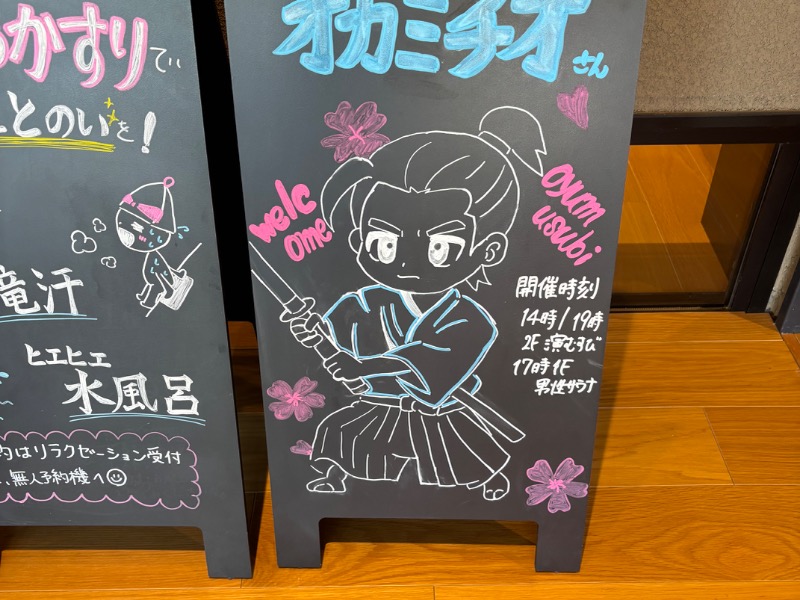 かすりでぃ
とのいを!
滝汗
ヒエヒエ
水風呂
約はリラクゼーション受付
、無人予約機へ
オカミチオ
さん
welc
ome
oyum
usubi
開催時刻
14時/19時
2F 演むすび
17時1F
男性サウナ